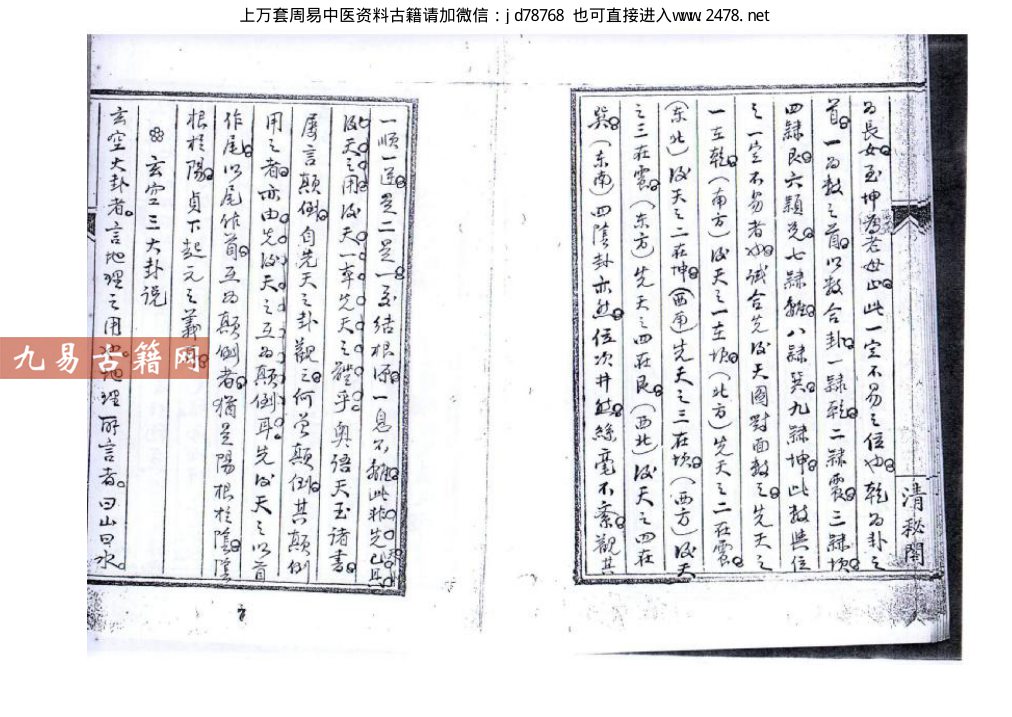 上万套周易中医资料古籍请加微信：jd78768 也可直接进入www.2478.net
为長女至坤為老母止此一定不易之位也乾为卦之
首一为数之首以数合卦一隸乾二隸震三隸坎
四隸艮六隸兌七隸離八隸巽九隸坤此数與位
之一定不易者也试合先后天圖對面数之先天之
一在乾（南方）后天之一在坎（北方）先天之二在震
（东北）后天之二在坤（西南）先天之三在坎（西方）后天
之三在震（东方）先天之四在艮（西北）后天之四在
巽（东南）四陰卦亦然位次井然絲毫不紊觀其
清秘閣
一順一逆是二是一互結根源一息不離此非先
后天之用后天一率先天之體乎奥语天玉诸書
屢言顛倒自先天之卦觀之何曾顛倒其顛倒
用之者亦由先后天之互为顛倒耳先后天之以首
作尾以尾作首互为顛倒者猶是陽根於陰陰
根於陽貞下起元之義
玄空三大卦说
玄空大卦者言地理之用地理所言者曰山曰水
九易古籍网